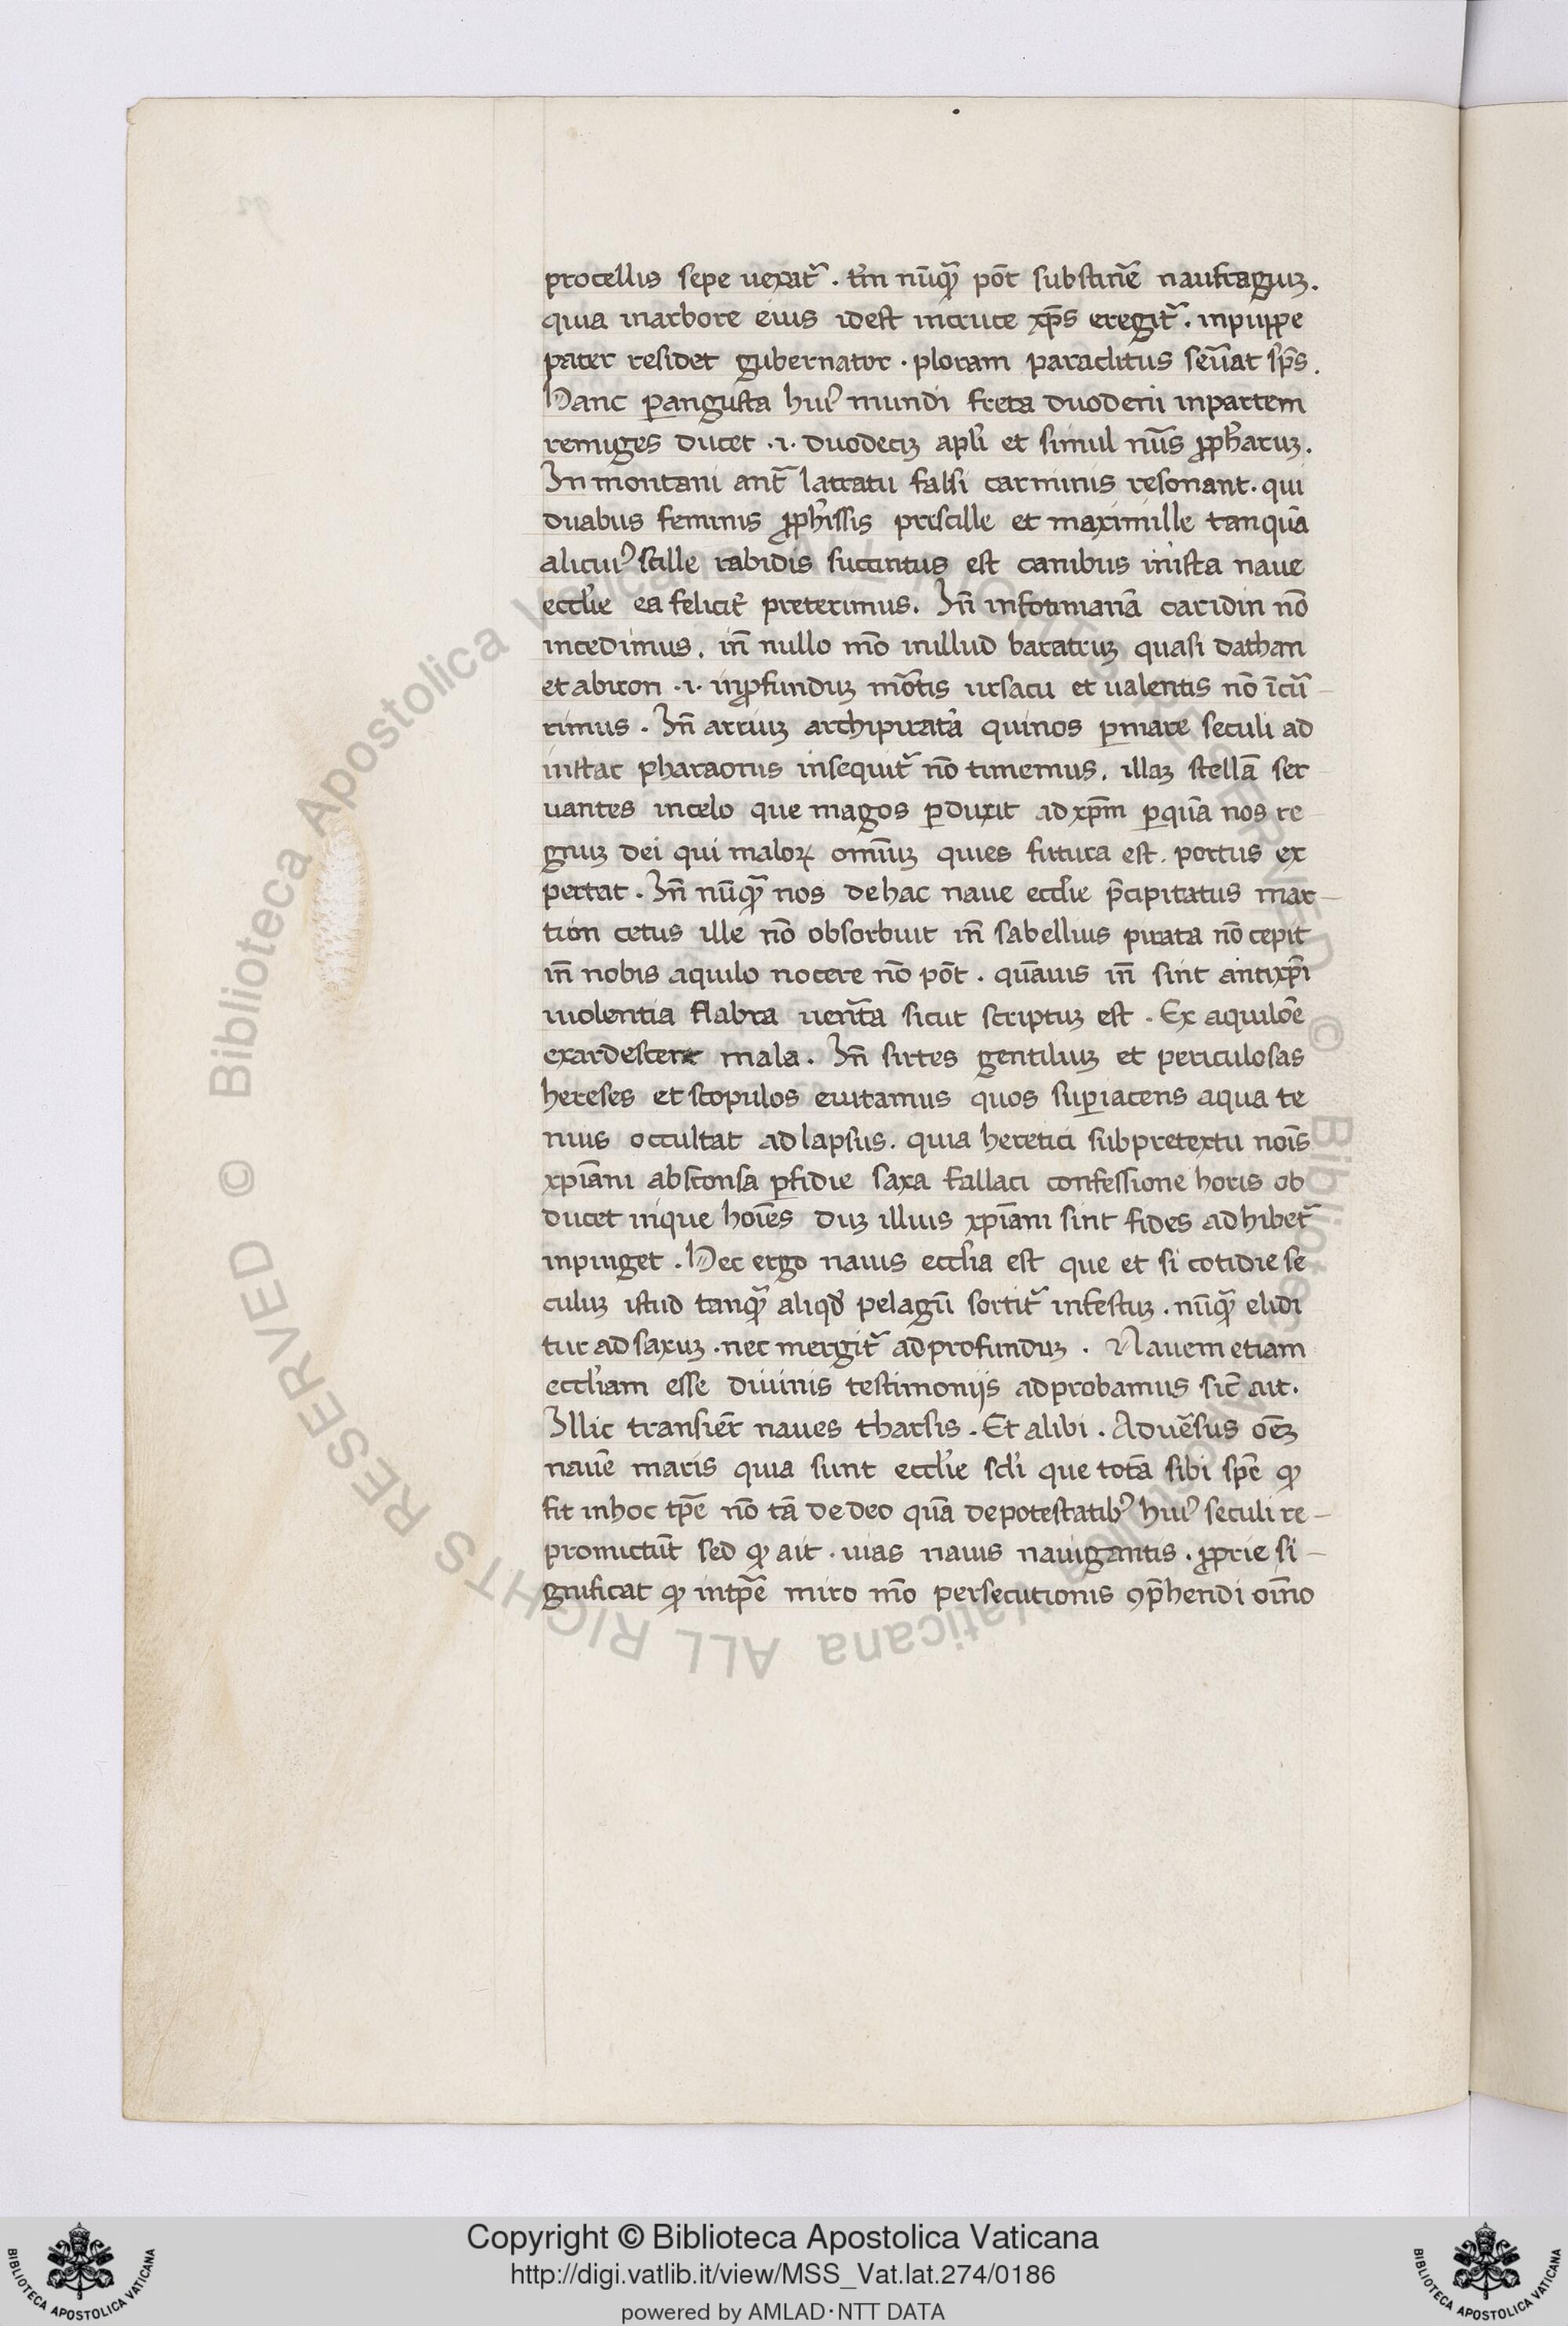 procellis sepe uexat᷑ . tm̄ nūqᷓ pōt substinē naufragiuꝫ.
quia inarbore eius idest incruce xp̄s eregit᷑ . inpuppe
pater residet gubernator . ploram paraclitus seūat sp̄s.
Hanc ꝑangusta huiꝰ mundi freta duodeni inpartem
remiges ducet .i. duodeciꝫ apl̄i et simul nūs ꝓpħaruꝫ.
In montani ant̄ latratu falsi carminis resonant. qui
duabus feminis ꝓpħissis priscille et maximille tanquā
alicuiꝰ scille rabidis succintus est canibus inista naue
eccl̄ie ea felicit̄ preterimus. In̄ infotinianā caridin nō
incedimus. in̄ nullo mō inillud baratruꝫ quasi dathan
et abiron .i. inꝓfunduꝫ mōtis ursacii et ualentis nō īcū
rimus . In̄ arriuꝫ archipiratā quinos ꝑmare seculi ad
instar pharaonis insequit᷑ nō timemus. illaꝫ stellā ser
uantes incelo que magos ꝑduxit ad xp̄m ꝑquā nos re
gnuꝫ dei qui maloꝝ omniuꝫ quies futura est. portus ex
pectat . In̄ nūqᷓ nos dehac naue eccl̄ie p̄cipitatus mar
tion cetus ille nō obsorbuit in̄ sabellius pirata nō cepit
in̄ nobis aquilo nocere nō pōt . quāuis in̄ sint antixp̄i
uiolentia flabra uent̄a sicut scriptuꝫ est . Ex aquilōe
exardescent mala . In̄ sirtes gentiliuꝫ et periculosas
hereses et scopulos euitamus quos suꝑiacens aqua te
nuis occultat adlapsus. quia heretici subpretextu nōis
xp̄iani absconsa ꝑfidie saxa fallaci confessione horis ob
ducet inique hoīes duꝫ illius xp̄iani sint fides adhibet᷑
inpinget . Hec ergo nauis eccl̄ia est que et si cotidie se
culuꝫ istud tanqᷓ aliqd̄ pelagū sortit᷑ infestuꝫ . nūqᷓ elidi
tur ad saxuꝫ . nec mergit᷑ adprofunduꝫ . Nauem etiam
eccl̄iam esse diuinis testimonijs adprobamus sic̄ ait.
Illic transier̄ naues tharsis . Et alibi . Aduēsus oēꝫ
nauē maris quia sunt eccl̄ie sc̄i que totā sibi spē ꝙ
fit inhoc tp̄e nō tā dedeo quā depotestatibꝰ huiꝰ seculi re-
promictūt sed ꝙ ait . uias nauis nauigantis . ꝓprie si-
gnificat ꝙ intp̄e miro mō persecutionis ꝯp̄hendi oīno
Copyright © Biblioteca Apostolica Vaticana
http://digi.vatlib.it/view/MSS_Vat.lat.274/0186
powered by AMLAD·NTT DATA
BIBLIOTECA APOSTOLICA VATICANA
BIBLIOTECA APOSTOLICA VATICANA
© Biblioteca Apostolica Vaticana ALL RIGHTS RESERVED
© Biblioteca Apostolica Vaticana ALL RIGHTS RESERVED